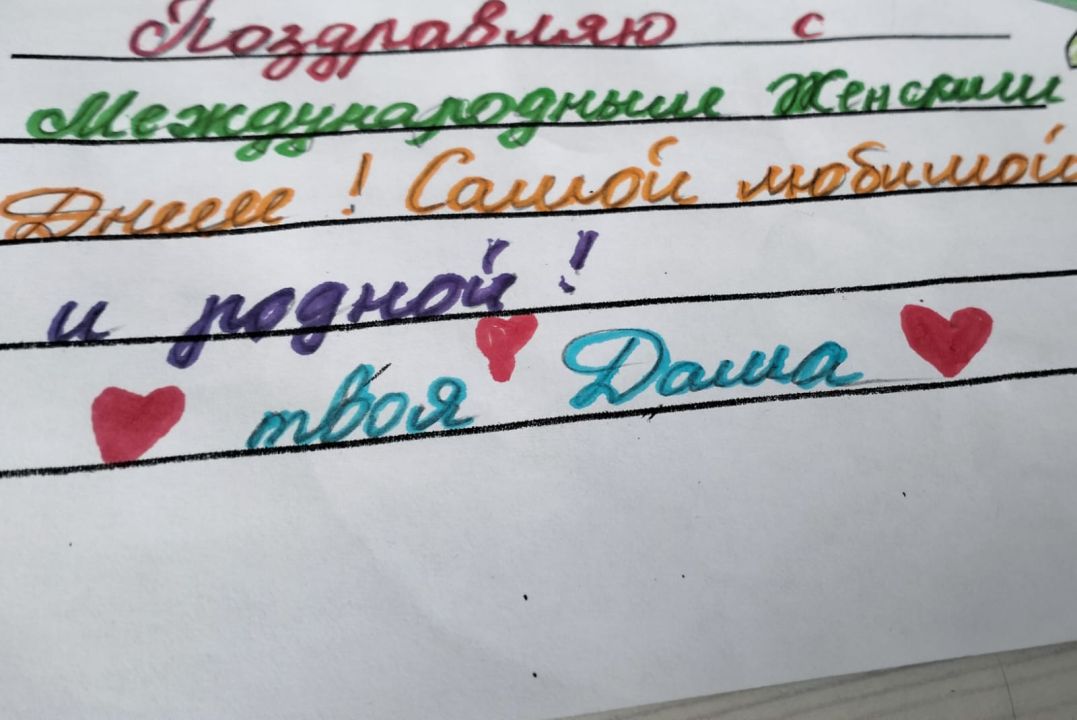 Поздравляю с
Международным Женским
Днем! Самой любимой
и родной!
твоя Даша